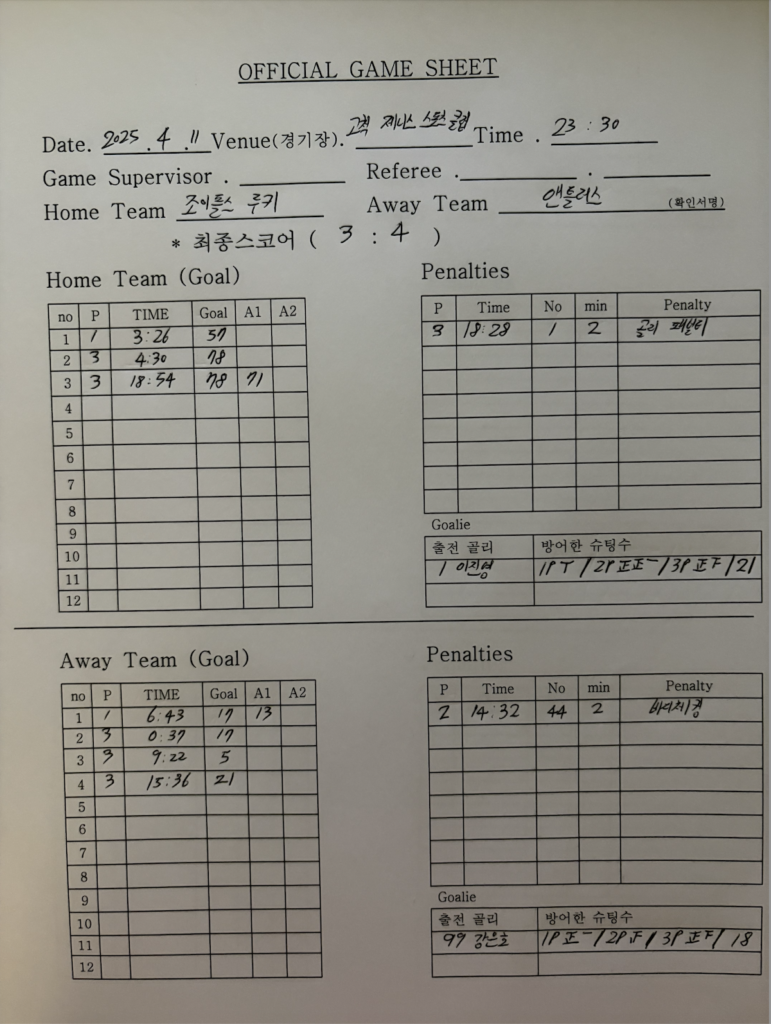 OFFICIAL GAME SHEET
Date. 2025 . 4 . 11 Venue(경기장). 고척 제니스 스포츠클럽 Time . 23 : 30
Game Supervisor . Referee . .
Home Team 조이플스 루키 Away Team 앤틀러스 (확인서명)
* 최종스코어 ( 3 : 4 )
Home Team (Goal)
no P TIME Goal A1 A2
1 1 3:26 57
2 3 4:30 78
3 3 18:54 78 71
4
5
6
7
8
9
10
11
12
Penalties
P Time No min Penalty
3 18:28 1 2 골리 패널티
Goalie
출전 골리 방어한 슈팅수
1 이진영 1P T / 2P 正正一 / 3P 正下 / 21
Away Team (Goal)
no P TIME Goal A1 A2
1 1 6:43 17 13
2 3 0:37 17
3 3 9:22 5
4 3 15:36 21
5
6
7
8
9
10
11
12
Penalties
P Time No min Penalty
2 14:32 44 2
Goalie
출전 골리 방어한 슈팅수
99 강은호 1P 正一 / 2P 正 / 3P 正下 / 18